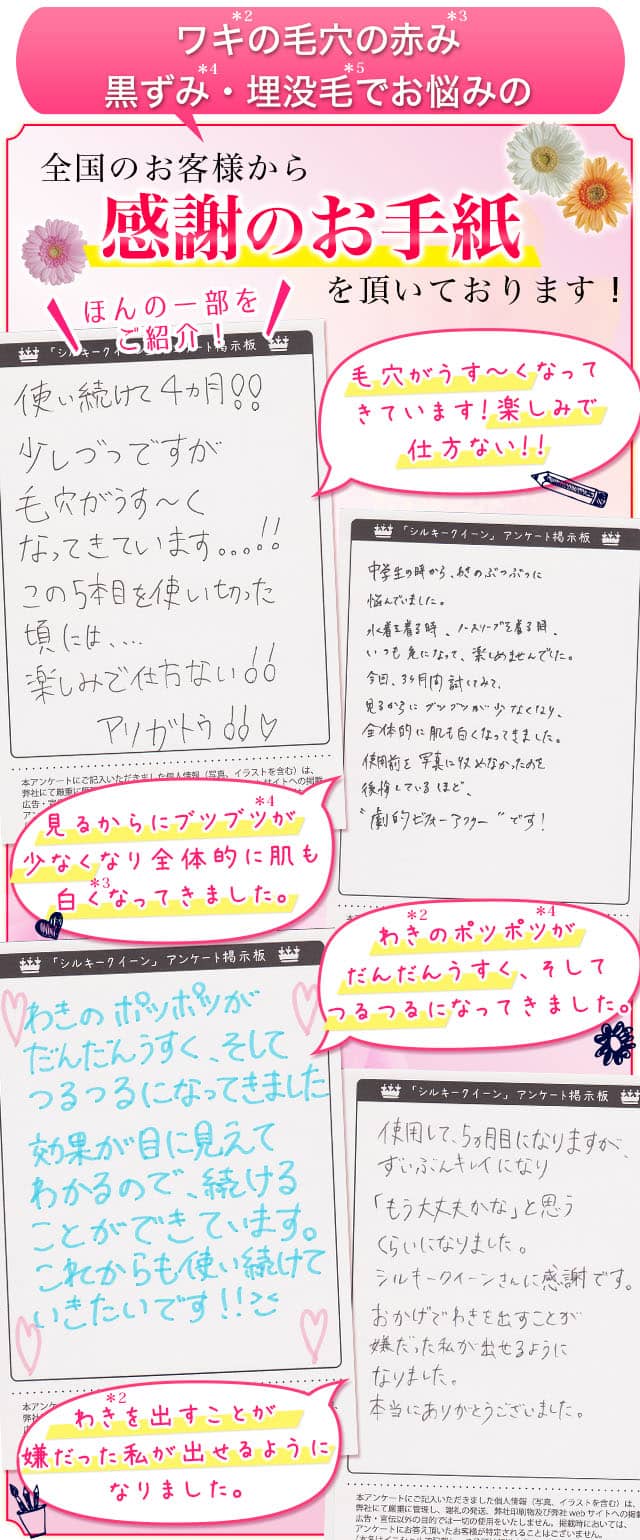 ワキの毛穴の赤み
*2 *3
黒ずみ・埋没毛でお悩みの
*4 *5
全国のお客様から
感謝のお手紙
を頂いております！
ほんの一部を
ご紹介！
「シルキークイーン」アンケート掲示板
使い続けて4ヵ月!!
少しづつですが
毛穴がうす～く
なってきています。。。!!
この5本目を使い切った
頃には、…
楽しみで仕方ない!!
アリガトウ!!♡
毛穴がうす～くなって
きています!楽しみで
仕方ない!!
「シルキークイーン」アンケート掲示板
中学生の時から、わきのぶつぶつに
悩んでいました。
水着を着る時、ノースリーブを着る時、
いつも気になって、楽しめませんでした。
今回、3ヶ月間試してみて、
見るからにブツブツが少なくなり、
全体的に肌も白くなってきました。
使用前を写真に収めなかったのを
後悔しているほど、
"劇的ビフォーアフター"です!
本アンケートにご記入いただきました個人情報（写真、イラストを含む）は、
見るからにブツブツが
*4
少なくなり全体的に肌も
白くなってきました。
*3
「シルキークイーン」アンケート掲示板
わきのポツポツが
だんだんうすく、そして
つるつるになってきました
効果が目に見えて
わかるので、続ける
ことができています。
これからも使い続けて
いきたいです!!
わきのポツポツが
*2 *4
だんだんうすく、そして
つるつるになってきました。
「シルキークイーン」アンケート掲示板
使用して、5ヵ月目になりますが、
ずいぶんキレイになり
「もう大丈夫かな」と思う
くらいになりました。
シルキークイーンさんに感謝です。
おかげでわきを出すことが
嫌だった私が出せるように
なりました。
本当にありがとうございました。
わきを出すことが
*2
嫌だった私が出せるように
なりました。
本アンケートにご記入いただきました個人情報（写真、イラストを含む）は、
弊社にて厳重に管理し、謝礼の発送、弊社印刷物及び弊社webサイトへの掲
広告・宣伝以外の目的では一切の使用をいたしません。掲載時においては、
アンケートにお答え頂いたお客様が特定されることはございません。